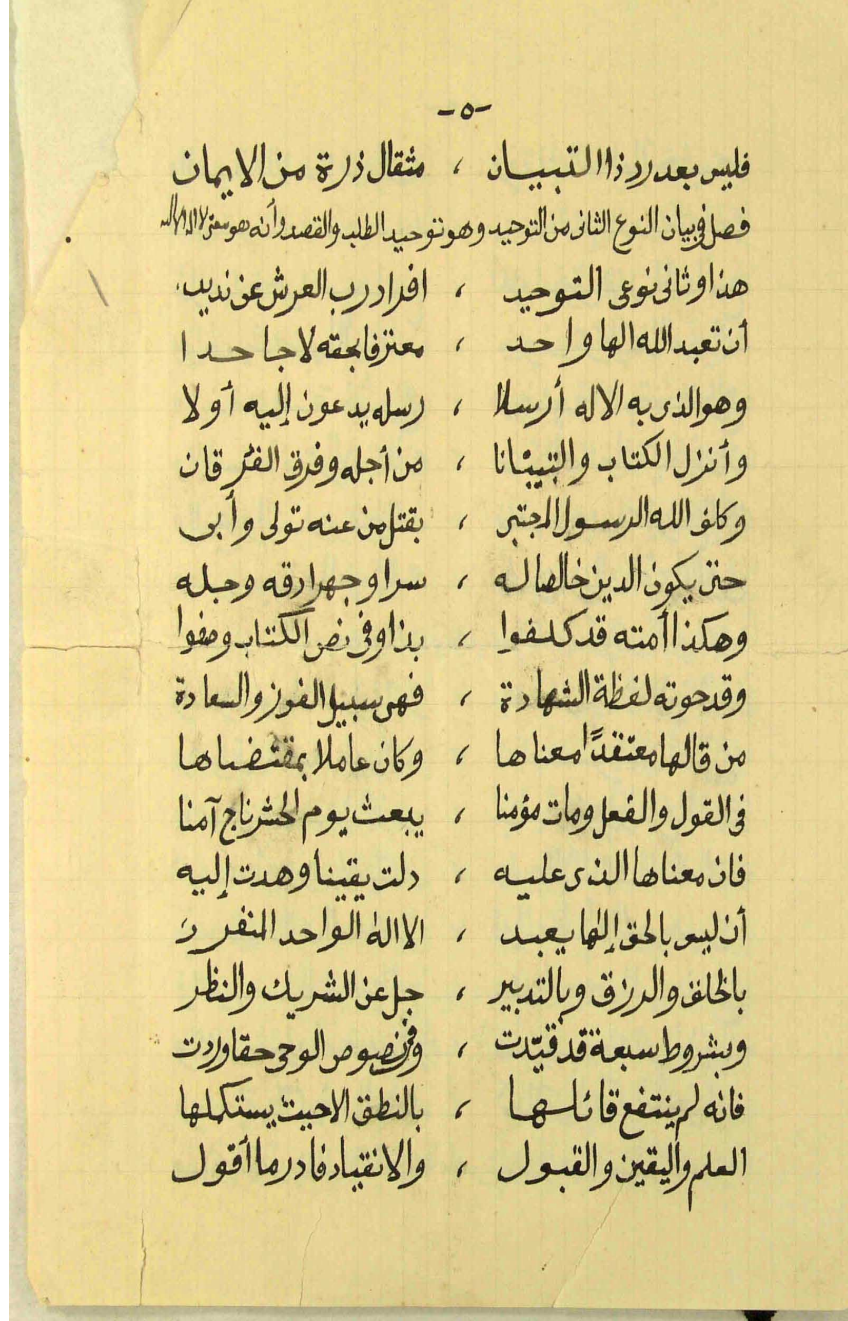 -٥-
فليس بعد رد ذا التبيان ، مثقال ذرة من الايمان
فصل في بيان النوع الثانى من التوحيد وهو توحيد الطلب والقصد وأنه هو معنى لا اله الا الله
هذا وثانى نوعى التوحيد ، افراد رب العرش عن نديد
أن تعبد الله الها واحد ، معترفا بحقه لا جاحدا
وهو الذى به الاله أرسلا ، رسله يدعون إليه أولا
وأنزل الكتاب والتبيانا ، من أجله وفرق الفرقان
وكلف الله الرسول المجتبى ، بقتل من عنه تولى وأبى
حتى يكون الدين خالصا له ، سرا وجهرا دقه وجله
وهكذا أمته قد كلفوا ، بذا وفى نص الكتاب وصفوا
وقد حوته لفظة الشهادة ، فهى سبيل الفوز والسعادة
من قالها معتقدًا معناها ، وكان عاملا بمقتضاها
فى القول والفعل ومات مؤمنا ، يبعث يوم الحشر ناج آمنا
فان معناها الذى عليه ، دلت يقينا وهدت إليه
أن ليس بالحق إلها يعبد ، الا اله الواحد المنفرد
بالخلق والرزق وبالتدبير ، جل عن الشريك والنظر
وبشروط سبعة قد قيّدت ، وفى نصوص الوحى حقا وردت
فانه لم ينتفع قائلها ، بالنطق الا حيث يستكملها
العلم واليقين والقبول ، والانقياد فادر ما أقول